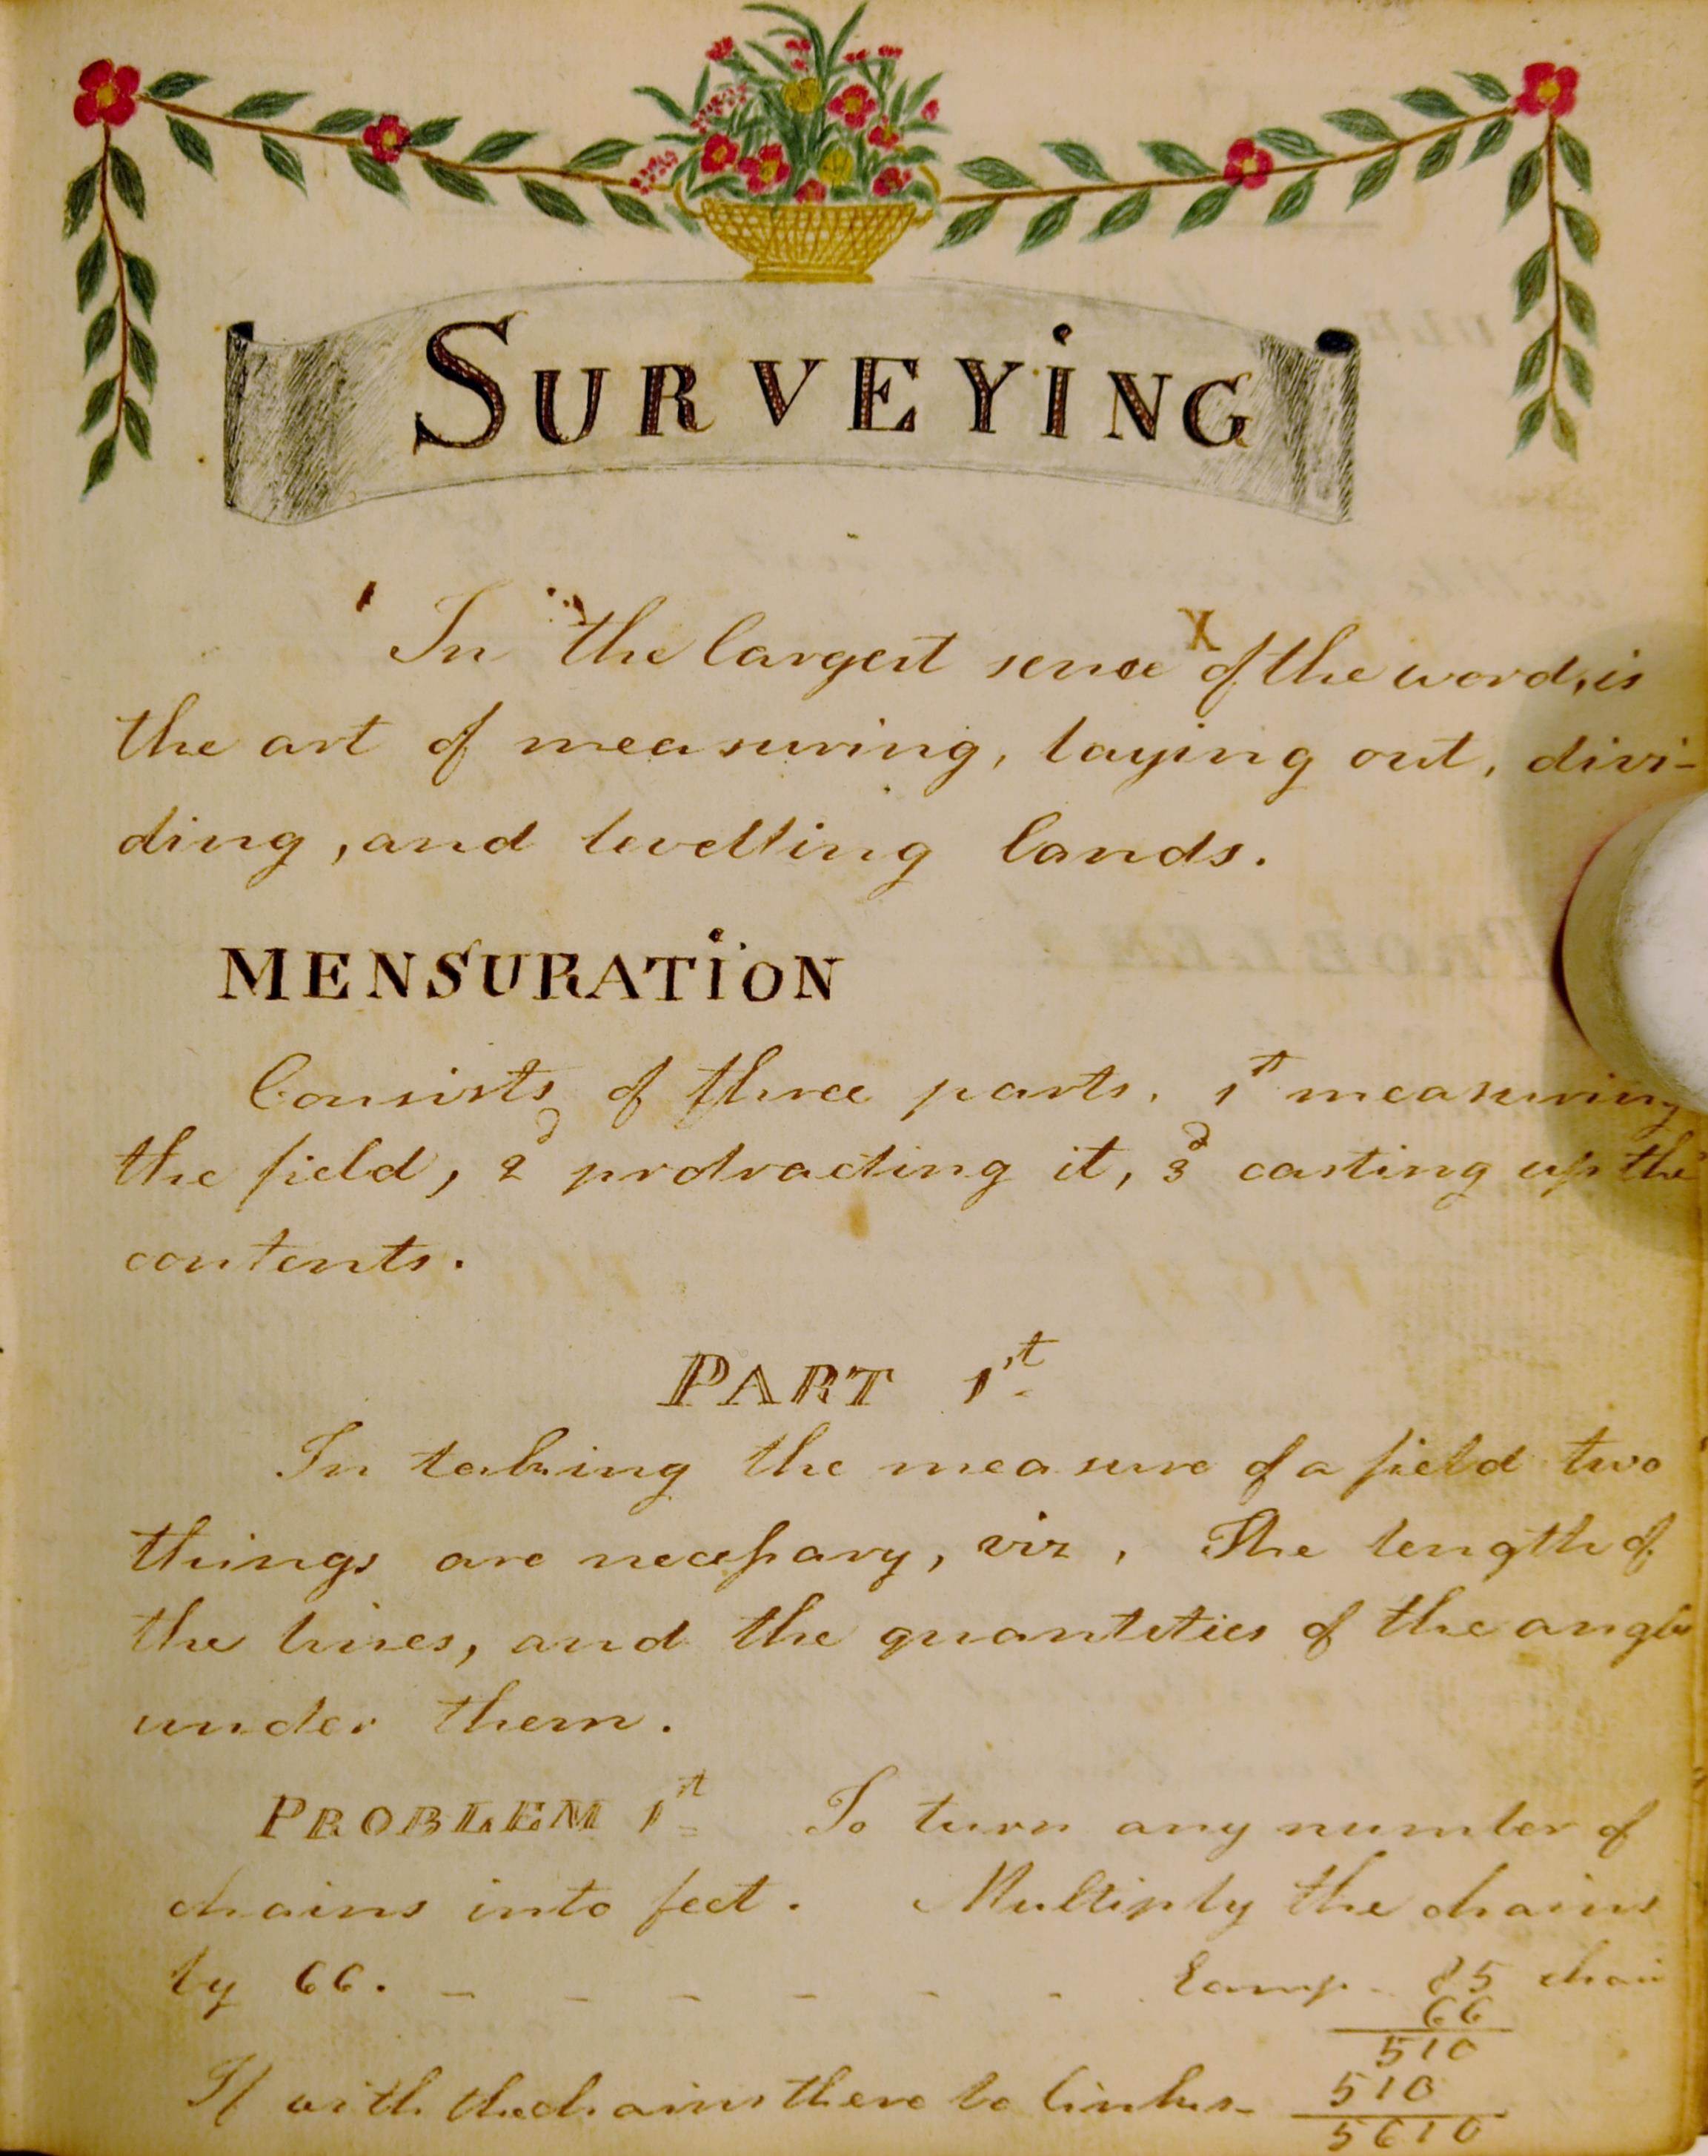 SURVEYING
In the largest sense of the word, is
the art of measuring, laying out, divi-
ding, and levelling lands.
MENSURATION
Consists of three parts. 1st measuring
the field, 2d protracting it, 3d casting up the
contents.
PART 1st
In taking the measure of a field two
things are necessary, viz, The length of
the lines, and the quantities of the angles
under them.
PROBLEM 1st To turn any number of
chains into feet. Multiply the chains
by 66. - - - - - - Examp. 85 chain
66
510
If with the chains there be links- 510
5610